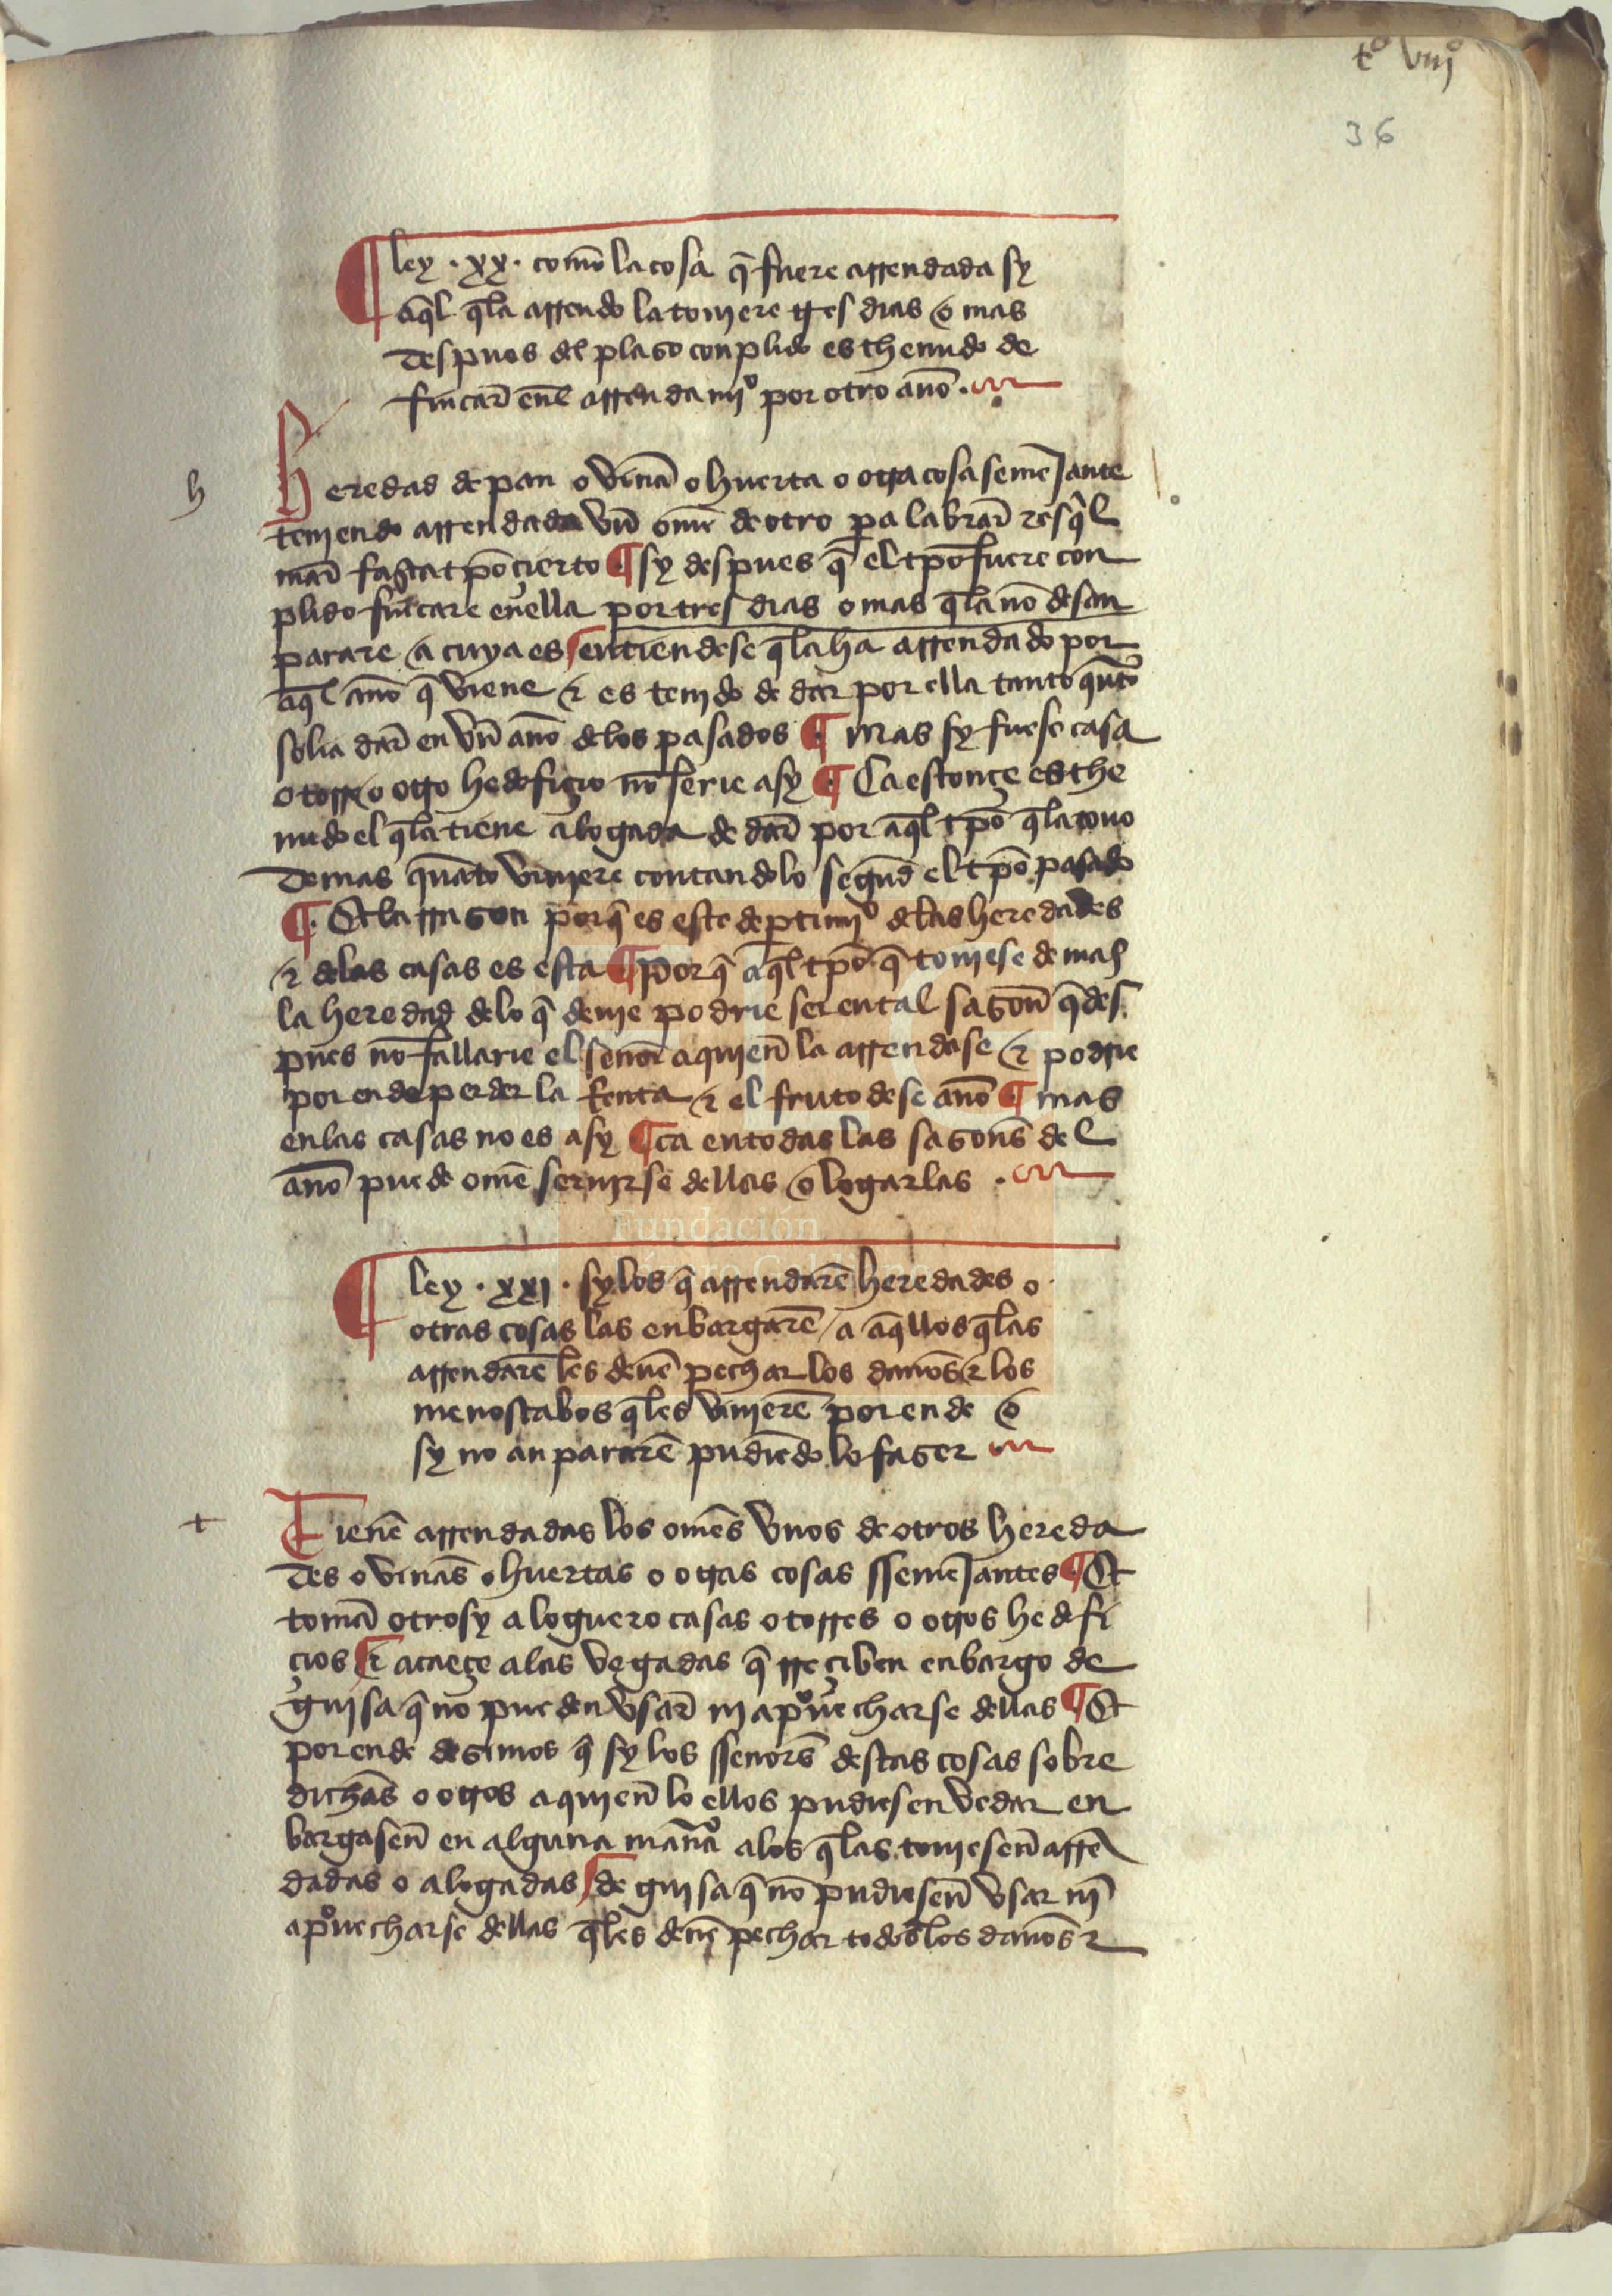 tº viijº
36
¶ ley · xx · comō la cosa q̄ fuere arrendada sy
aq̄l q̄la arrendo la toujere tres dias o mas
despues del plaso conplido es thenudo de
fincar̄ enl̄ arrendamjº por otro anō ·
h
heredad de pan o vinā o huerta o otra cosa semēJante
tenjendo arrendada vn̄ ome de otro pa labrar̄ τ esq̄l
mar̄ fasta tp̄o çierto ¶ sy despues q̄ el tp̄o fuere con
plido fincare en̄ella por tres dias o mas q̄la nō desan
parare a cuya es entiendese q̄la ha arrendado por
aq̄l anō q̄ viene τ es tenjdo de dar por ella tanto qn̄to
solia dar̄ en vn̄ anō delos pasados ¶ mas sy fuese casa
o torre o otro hedefiçio nō serie asy ¶ Ca estonçe es the
nudo el q̄la tiene alogada de dar̄ por aq̄l tp̄o q̄la touo
demas quāto viniere contandolo segūd el tp̄o pasado
¶ Et la rrason porq̄ es este deptimjº delas heredades
τ delas casas es esta ¶ Por q̄ aq̄l tp̄o q̄ toujese de mas
la heredad delo q̄ deue podrie ser en tal sason̄ q̄ des
pues nō fallarie el señor aquien̄ la arrendase τ podrie
por ende perder la Renta τ el fruto dese anō ¶ mas
en las casas no es asy ¶ ca en todas las sasons̄ del
anō puede omē serujrse dellas o logarlas ·
¶ ley · xxj · sy los q̄ arrendarē heredades o
otras cosas las enbargarē a aq̄llos q̄ las
arrendarē les deuē pechar los danōs τ los
menoscabos q̄les vinierē por ende o
sy no anpararē pudiēdo lo faser
t
Tienē arrendadas los omēs vnos de otros hereda
des o vinās o huertas o otras cosas ssemēJantes ¶ Et
tomā otrosy a loguero casas o torres o otros hedefi
çios τ acaeçe alas vegadas q̄ rreçiben enbargo de
guisa q̄ no pueden vsar̄ nj apºuecharse dellas ¶ Et
por ende desimos q̄ sy los sseñors̄ destas cosas sobre
dichās o otros a quien̄ lo ellos pudiesen vedar en
bargasen̄ en alguna manª alos q̄ las toujesen̄ arrē
dadas o alogadas de guisa q̄ nō pudiesen̄ vsar nj̄
apºuecharse dellas q̄les deuē pechar todos los danōs τ
Fundación